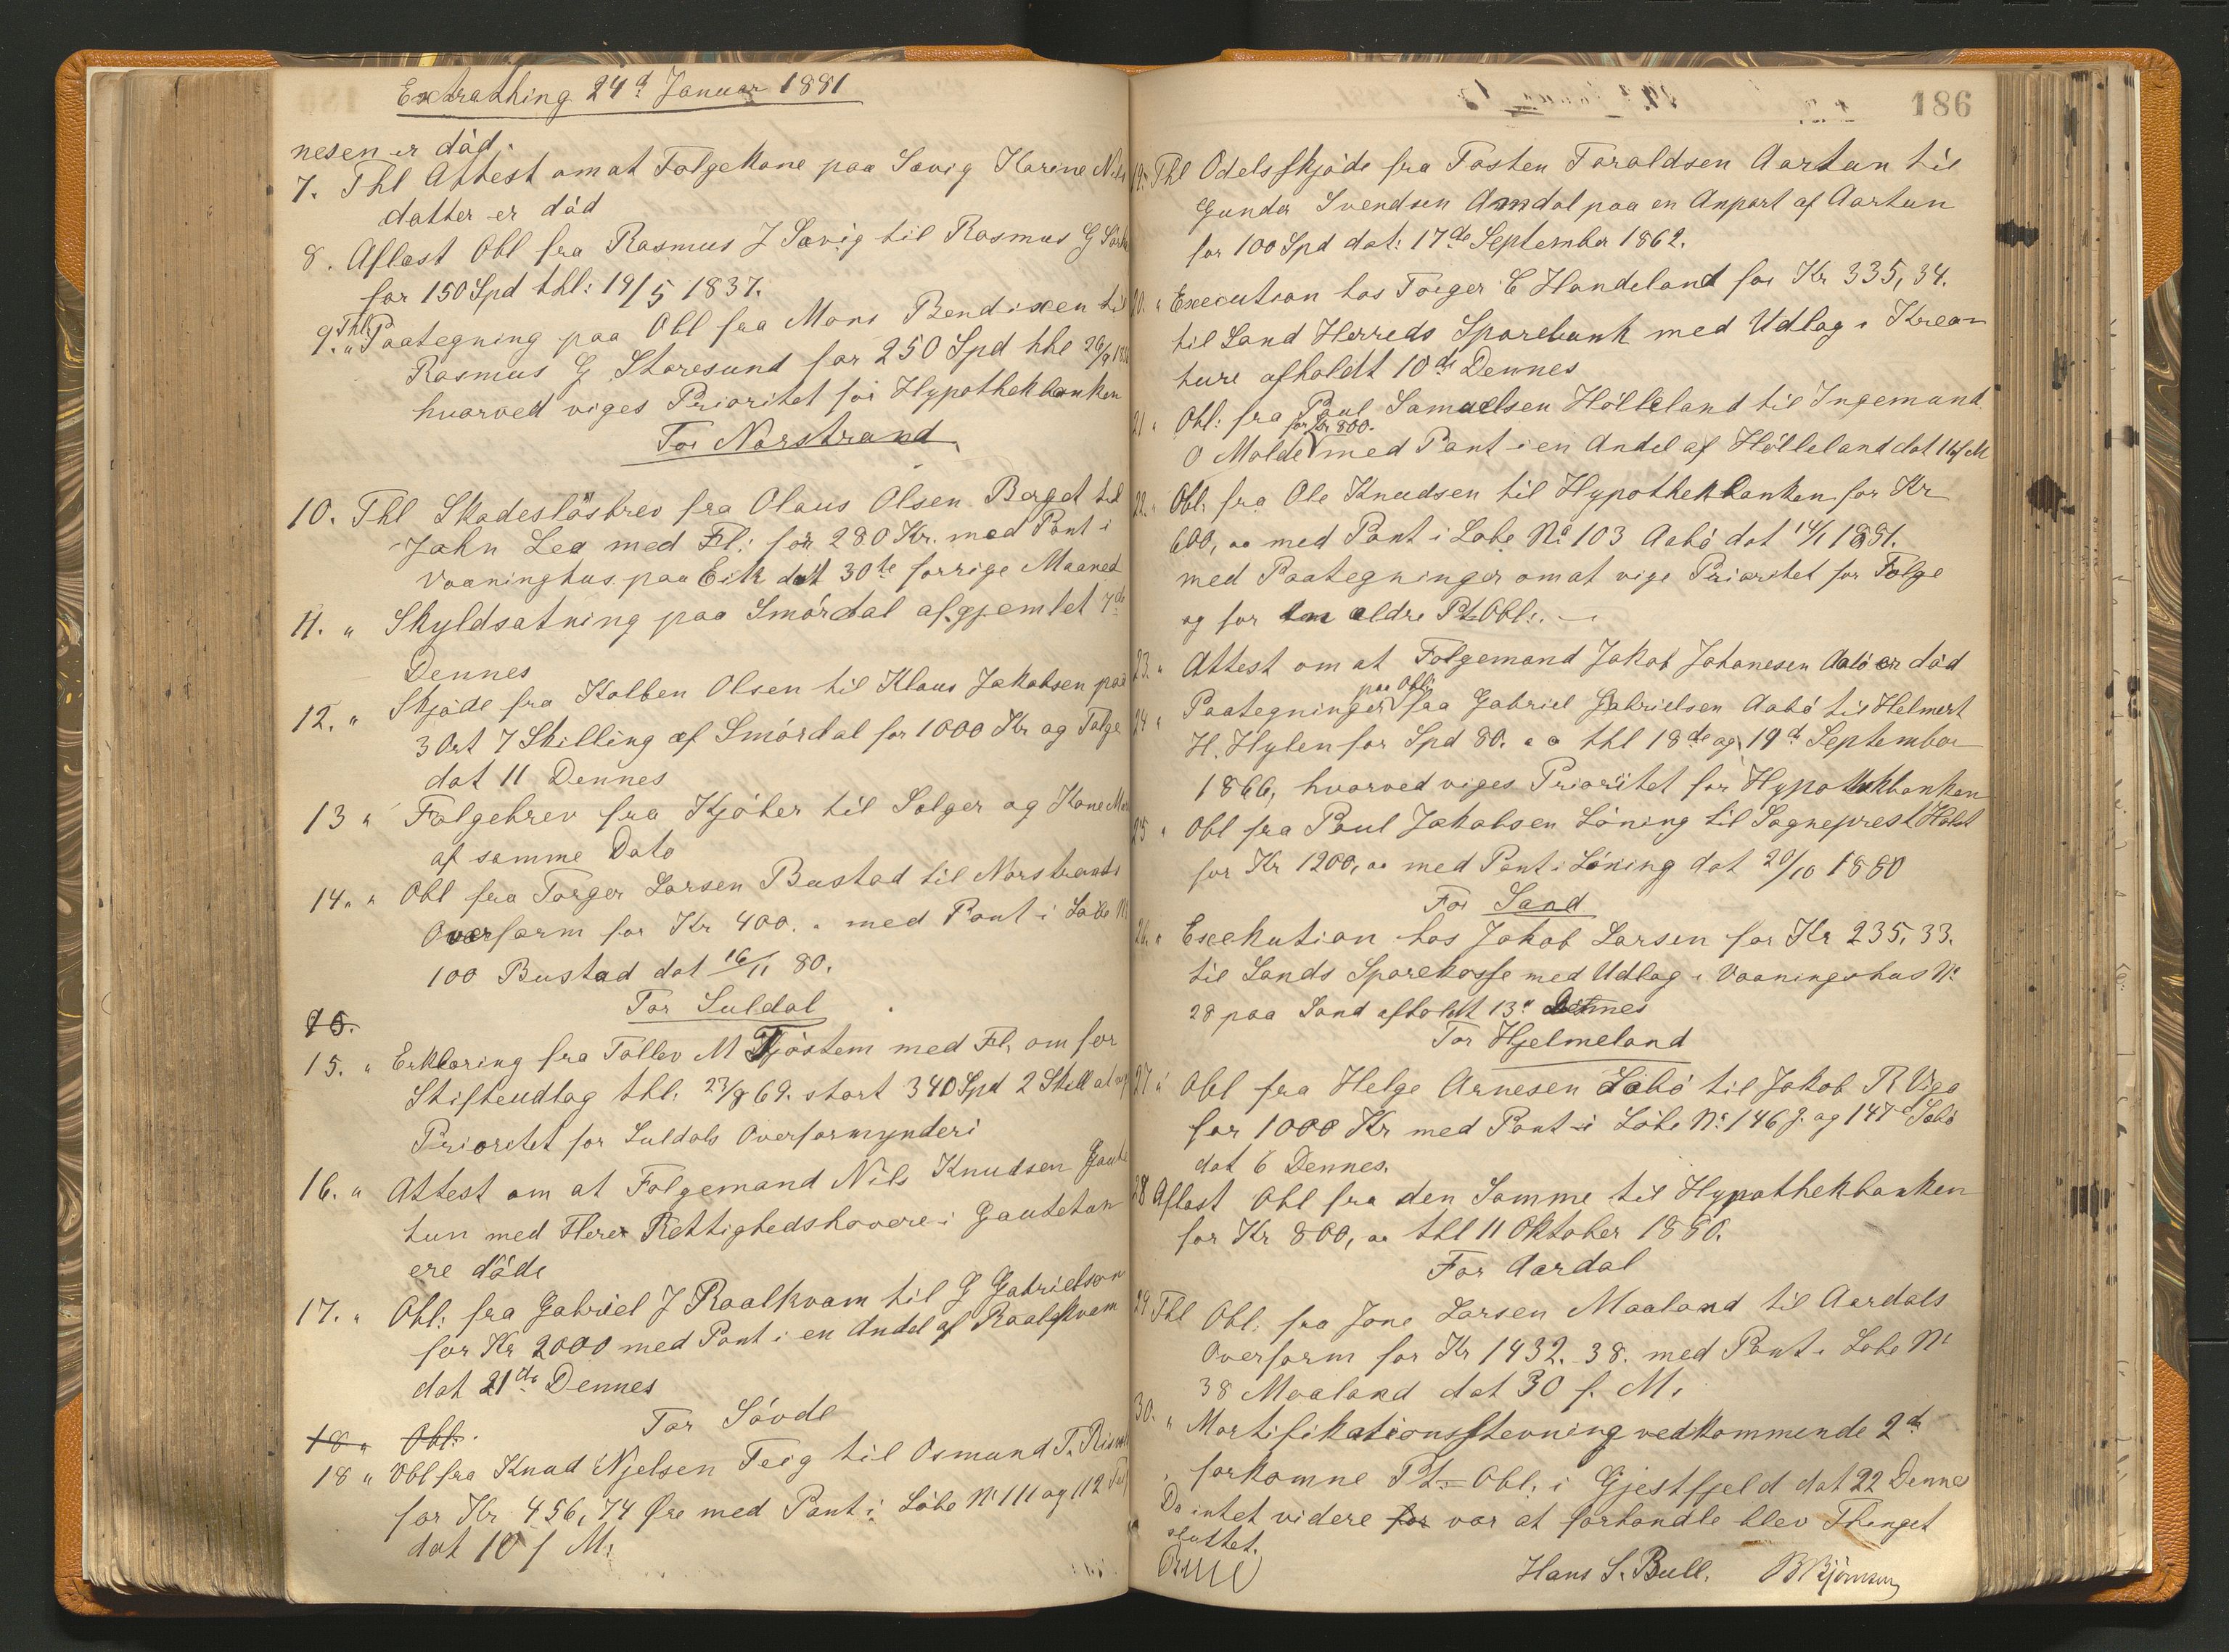 Extrathing 24d Januar 1881
nesen er død.
7. Thl Attest om at Folgekone paa Søvig Karine Nils
datter er død
8. Aflæst Obl fra Rasmus J Søvig til Rasmus G
for 150 Spd thl: 19/5 1837.
9. " Thl: Paategning paa Obl fra Mons Bendixen til
Rasmus G Storesund for 250 Spd thl 26/9
hvorved viges Prioritet for Hypothekbanken
For Norstrand
10. Thl Skadesløsbrev fra Olaus Olsen Berget til
John Lea med Fl: for 280 Kr. med Pant i
Vaaninghus paa Eik dat 30te forrige Maaned
11. " Skyldsætning paa Smørdal afhjemlet 7de
Dennes
12. " Skjøde fra Kolben Olsen til Klaus Jakobsen paa
3 Ort 7 Skilling af Smørdal for 1000 Kr og Folge
dat 11 Dennes
13 " Folgebrev fra Kjøber til Sælger og Kone
af samme Dato
14. " Obl fra Torger Larsen Bustad til Norstrands
Overform for Kr 400. " med Pant i Løbe N
100 Bustad dat 16/11 80.
For Suldal
15.
15. " Erklæring fra Tollev M Tjøstem med Fl, om for
Skifteudlag thl. 23/8 69. stort 340 Spd 2 Skill at
Prioritet for Suldals Overformynderi
16. " Attest om at Folgemand Nils Knudsen Gaute
tun med Flere Rettighedshavere i Gautetun
ere døde
17. " Obl: fra Gabriel J Raalkvam til G Gabrielsen
for Kr 2000 med Pant i en Andel af Raalkvam
dat 21de Dennes
For Søvde
18 " Obl:
18 " Obl fra Knud Njelsen Teig til Osmund T.
for Kr. 456,74 Øre med Pant i Løbe No 111 og 112
dat 10 f M.
186
19. Thl Odelsskjøde fra Tosten Toraldsen Aartun til
Gunder Svendsen Amdal paa en Anpart af Aartun
for 100 Spd dat: 17de September 1862.
20. " Execution hos Torger C Handeland for Kr 335,34.
til Sand Herreds Sparebank med Udlæg i Krea-
ture afholdt 10de Dennes
21 " Obl: fra Poul Samuelsen Hølleland til Ingemund
for Kr 800.
O Molde med Pant i en Andel af Hølleland dat 16 f M
22. " Obl: fra Ole Knudsen til Hypothekbanken for Kr
600, oo med Pant i Løbe No 103 Aabø dat 14/1 1881.
med Paategninger om at vige Prioritet for Folge
og for en ældre Pt Obl:.
23. " Attest om at Folgemand Jakob Johanesen Aabø er død
paa Obl:
24 " Paategninger fra Gabriel Gabrielsen Aabø til Helmert
H. Hylen for Spd 80. oo thl 18de og 19de September
1866, hvorved viges Prioritet for Hypothekbanken
25 " Obl fra Poul Jakobsen Løning til Sogneprest Holst
for Kr 1200, oo med Pant i Løning dat 20/10 1880
For Sand
26. " Exekution hos Jakob Larsen for Kr 235,33.
til Sands Sparekasse med Udlæg i Vaaningshus No
28 paa Sand afholdt 13de Dennes
For Hjelmeland
27 " Obl fra Helge Arnesen Sæbø til Jakob R Viga
for 1000 Kr med Pant i Løbe No 146 f. og 147 Sæbø
dat 6 Dennes.
28 Aflæst Obl fra den Samme til Hypothekbanken
for Kr 800, oo thl 11 Oktober 1880.
For Aardal
29 Thl Obl: fra Jone Larsen Maaland til Aardals
Overform for Kr 1432. 38. med Pant i Løbe No
38 Maaland dat 30 f. M.
30. " Mortifikationsstevning vedkommende 2de
forkomne Pt= Obl. i Gjestfjeld dat 22 Dennes
Da intet videre for var at forhandle blev Thinget
sluttet.
Hans S. Bull. B Bjørnsen